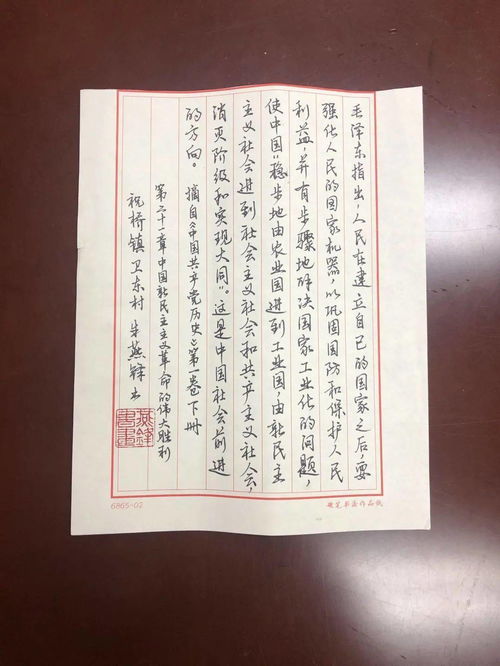 毛泽东指出，人民在建立自己的国家之后，要
强化人民的国家机器，以巩固国防和保护人民
利益，并有步骤地解决国家工业化的问题，
使中国“稳步地由农业国进到工业国，由新民主
主义社会进到社会主义社会和共产主义社会，
消灭阶级和实现大同”。这是中国社会前进
的方向。
摘自《中国共产党历史》第一卷下册
第二十一章中国新民主主义革命的伟大胜利
祝桥镇卫东村 朱燕锋书
燕锋
书画
6865-02
硬笔书法作品纸